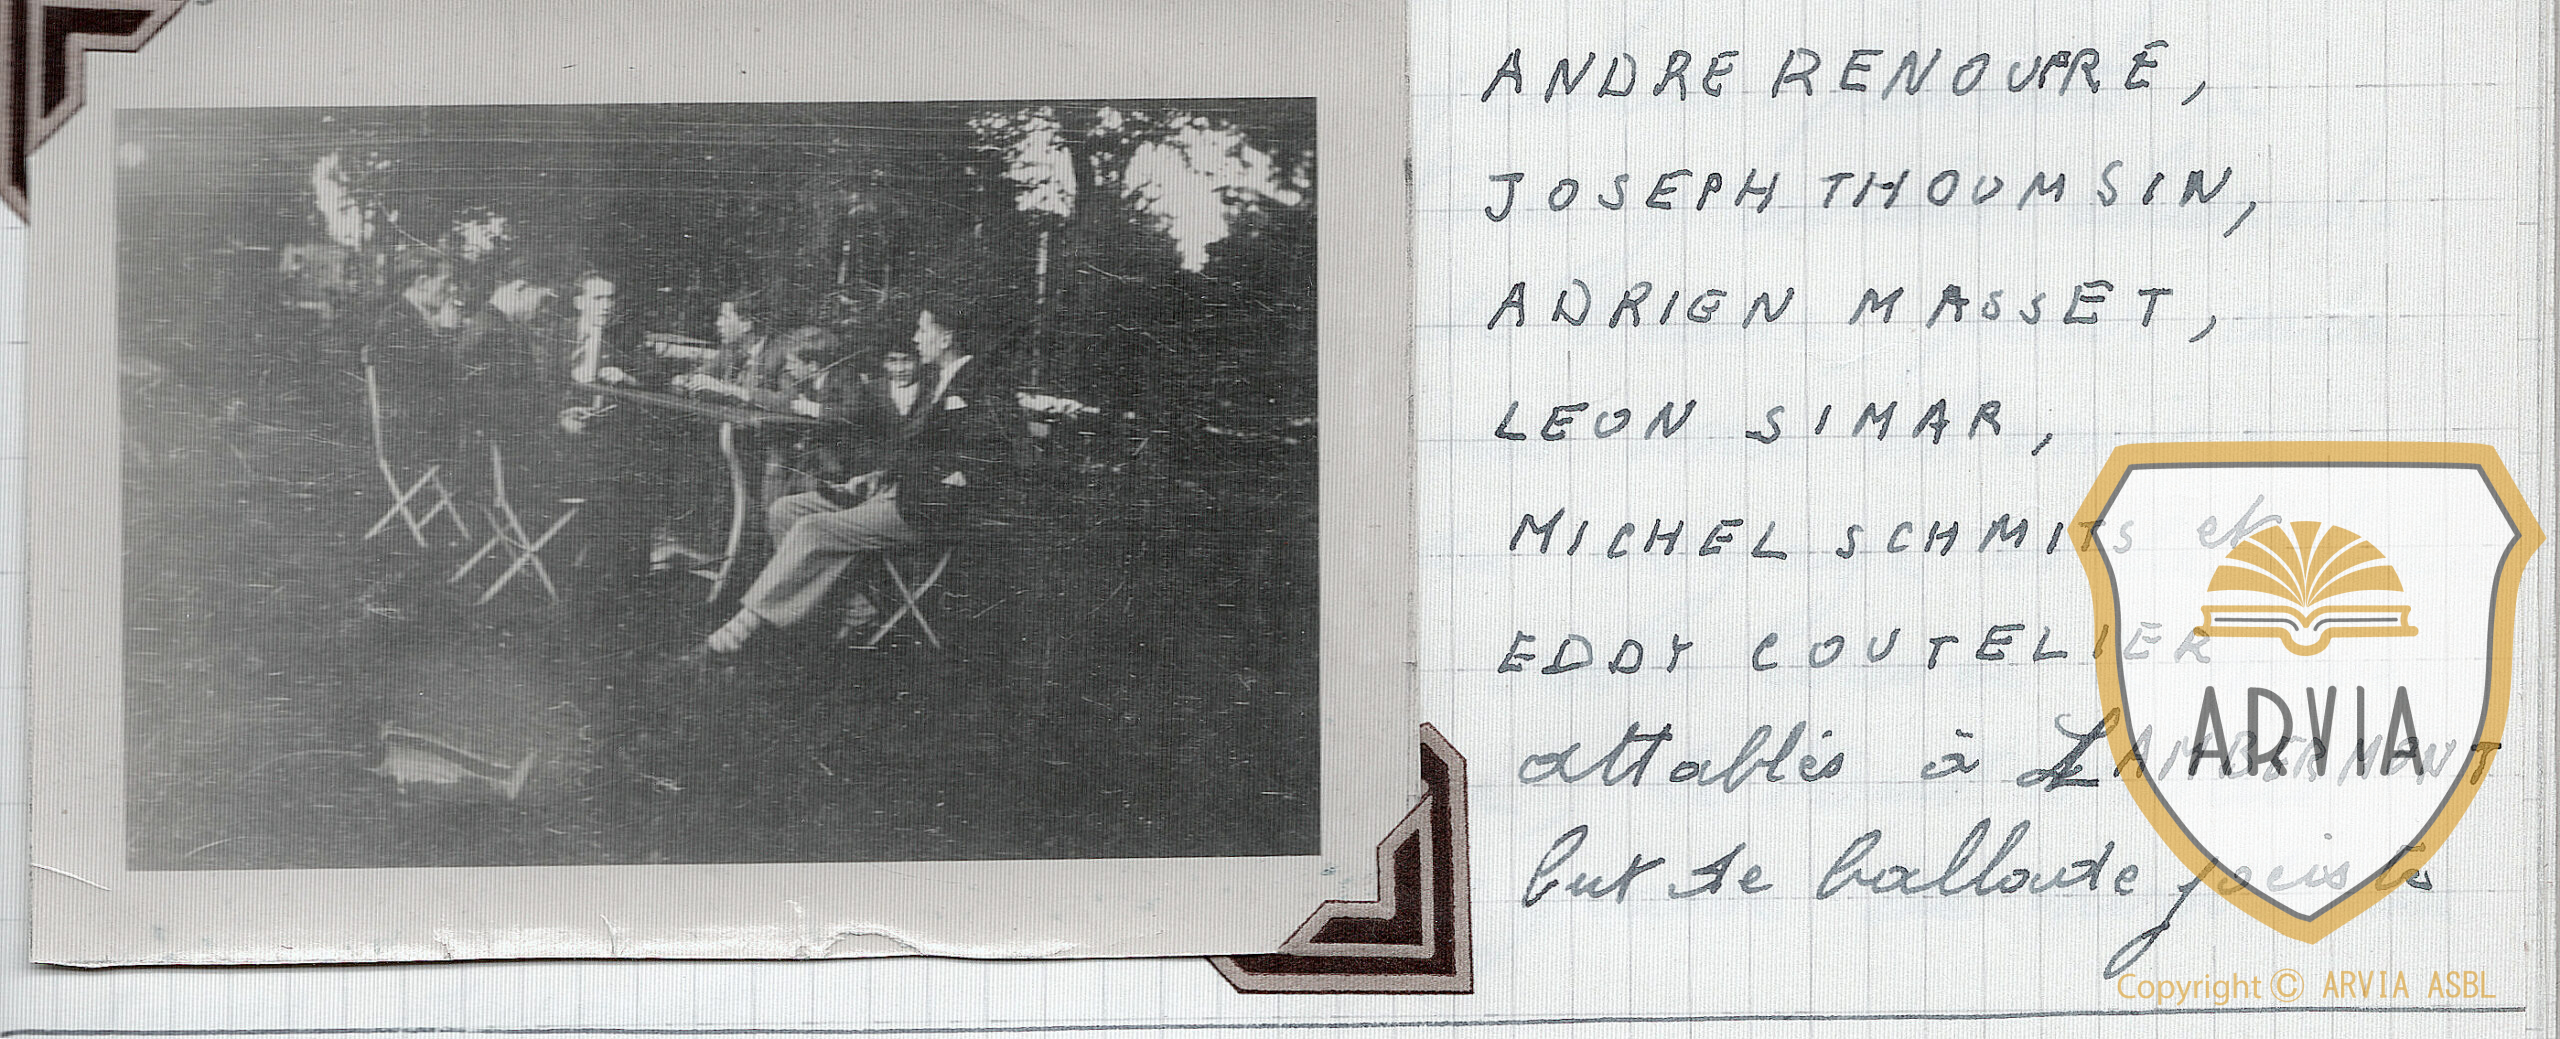 ANDRE RENOUPRÉ,
JOSEPH THOUMSIN,
ADRIEN MASSET,
LEON SIMAR,
MICHEL SCHMITS et
EDDY COUTELIER
attablés à LAMBERMONT
but de ballade jociste
ARVIA
Copyright © ARVIA ASBL